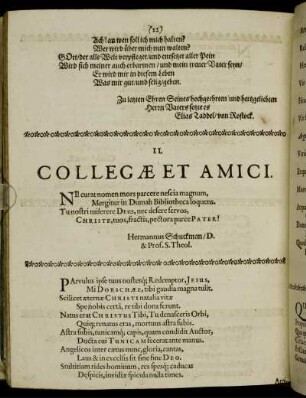 (22)
Ach! an wen soll ich mich halten?
Wer wird über mich nun walten?
GOtt/ der alle Welt verpfleget und entsetzet aller Pein
Wird sich meiner auch erbarmen / und mein treuer Vater seyn/
Er wird mir in diesem Leben
Was mir gut und selig/geben.
Zu letzten Ehren Seines hochgeehrten und hertzgeliebten
Herrn Vatern setzt es
Elias Taddel/ von Rostock.
II.
COLLEGÆ ET AMICI.
NIl curat nomen mors parcere nescia magnum,
Mergitur in Dumah Bibliotheca loquens.
Tu nostri miserere DEUS, nec desere servos,
CHRISTE, tuos, fractis, pectora parce PATER!
Hermannus Schuckmen / D.
& Prof. S. Theol.
PArvulus ipse tuus nosterq; Redemptor, JESUS,
Mi DORSCHÆE, tibi gaudia magna tulit.
Scilicet æternæ CHRISTI natalia vitæ
Spe nobis certâ, re tibi dona ferunt.
Natus erat CHRISTUS Tibi, Tu denasceris Orbi,
Quiq; renatus eras, mortuus astra subis.
Astra subis, tunicamq; capis, quam condidit Auctor,
Docta cui TUNICAM fecerat ante manus.
Angelicos inter cœtus nunc, gloria, cantus,
Laus & in excelsis sit sine fine DEO.
Stultitiam rides hominum, res spesq; caducas
Despicis, inridis spicula nuda times.